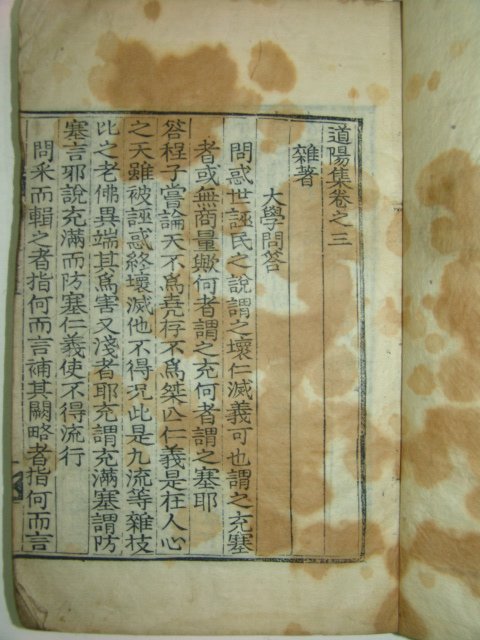 道陽集卷之三
雜著
大學問答
問惑世誣民之說謂之壞仁滅義可也謂之充塞
者或無商量歟何者謂之充何者謂之塞耶
答程子嘗論天不爲堯存不爲桀亡仁義是在人心
之天雖被誣惑終壞滅他不得况此是九流等雜技
比之老佛異端其爲害又淺者耶充謂充滿塞謂防
塞言邪說充滿而防塞仁義使不得流行
問采而輯之者指何而言補其闕略者指何而言